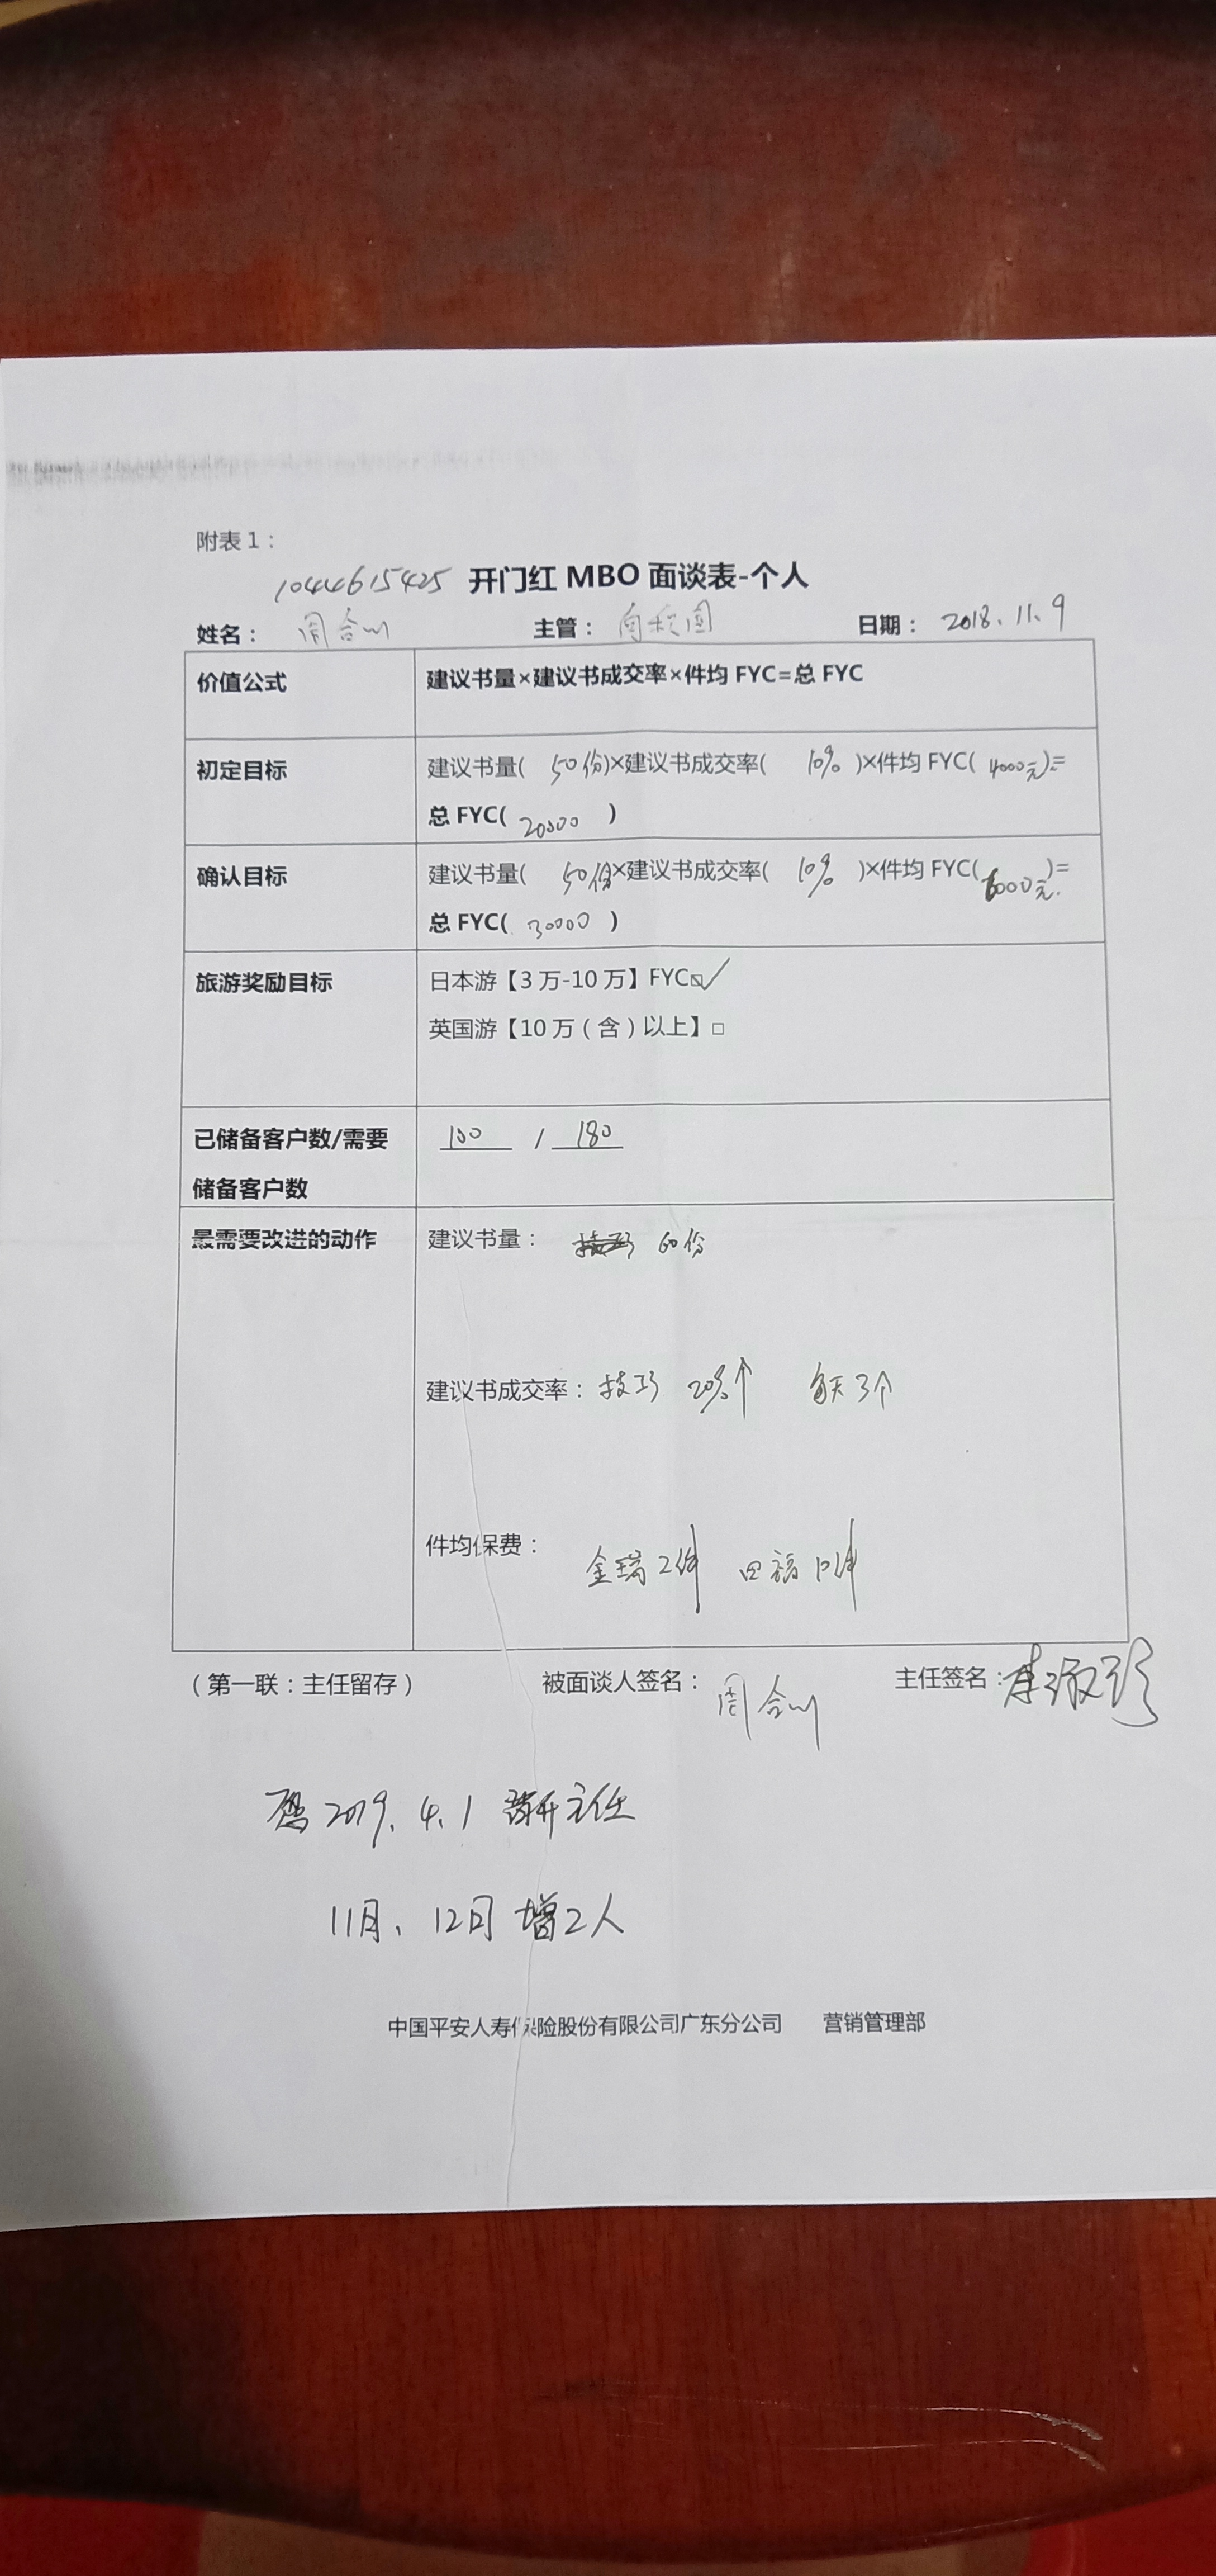 附表1：
1044615425 开门红 MBO 面谈表-个人
姓名： 周合川 主管： 日期： 2018.11.9
价值公式 建议书量×建议书成交率×件均 FYC=总 FYC
初定目标 建议书量( 50份)×建议书成交率( 10% )×件均 FYC( 4000元)=
总 FYC( 20000 )
确认目标 建议书量( 50份×建议书成交率( 10% )×件均 FYC(6000元)=
总 FYC( 30000 )
旅游奖励目标 日本游【3 万-10 万】FYC☑
英国游【10 万（含）以上】□
已储备客户数/需要 100 / 180
储备客户数
最需要改进的动作 建议书量： 60份
建议书成交率：技巧 20%个 每天3个
件均保费：
金瑞2件 福1件
（第一联：主任留存） 被面谈人签名： 周合川 主任签名：
2019.4.1 主任
11月、12月 增2人
中国平安人寿保险股份有限公司广东分公司 营销管理部